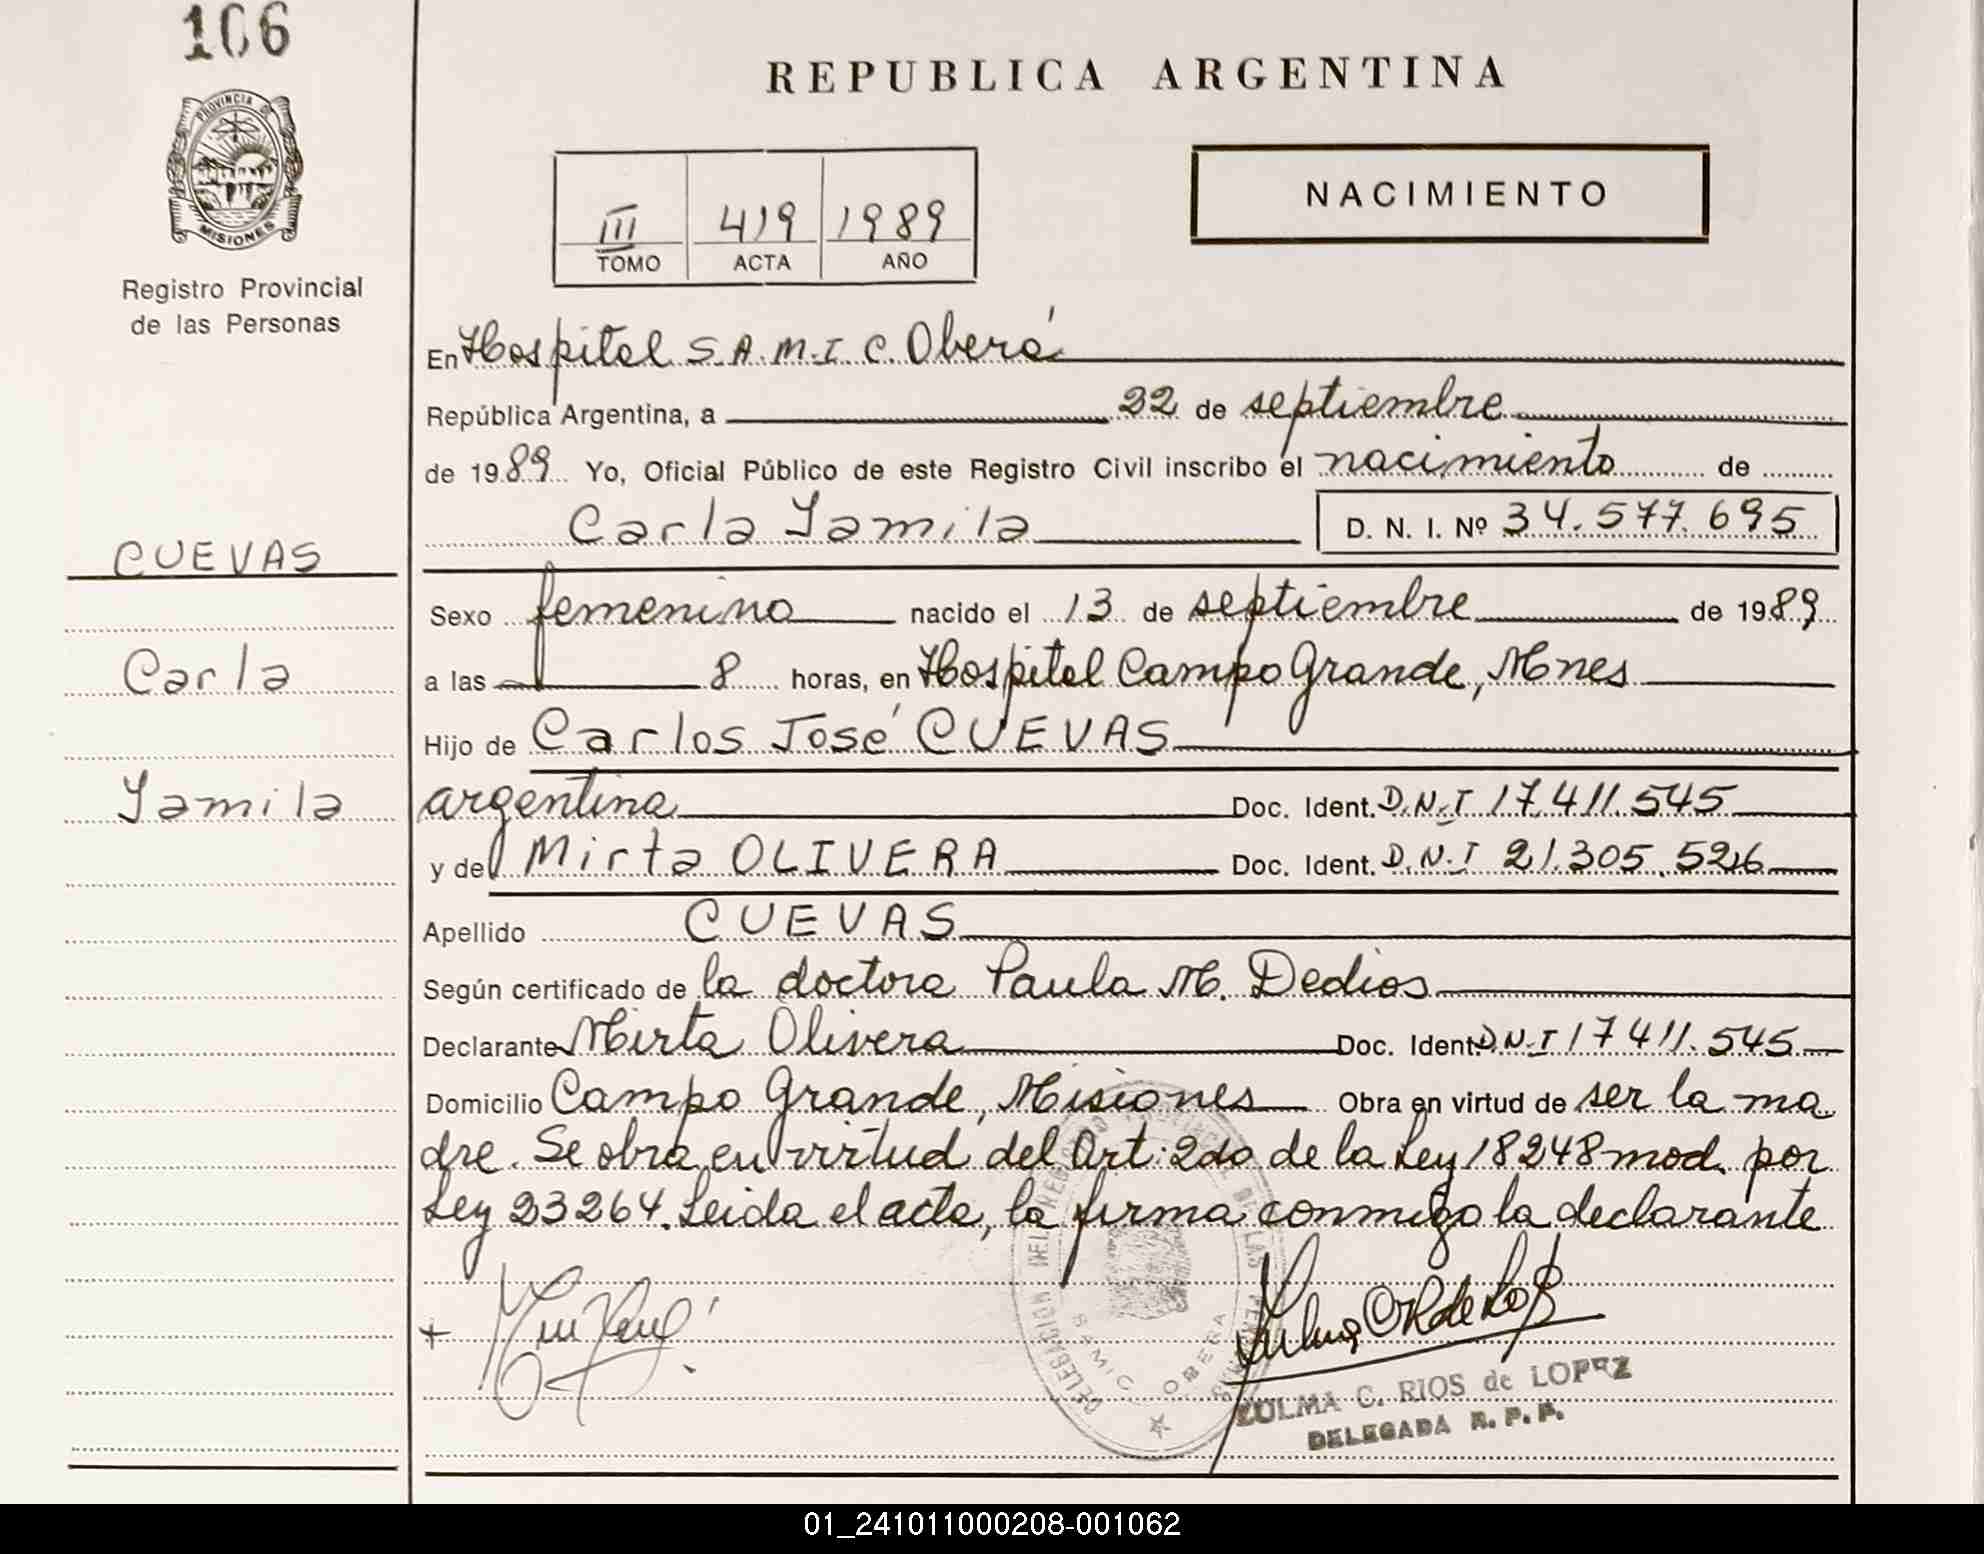 106
PROVINCIA DE
MISIONES
Registro Provincial
de las Personas
CUEVAS
Carla
Yamila
REPUBLICA ARGENTINA
III 419 1989
TOMO ACTA AÑO
NACIMIENTO
En Hospital S.A.M.I.C. Oberá
República Argentina, a 22 de septiembre
de 1989 Yo, Oficial Público de este Registro Civil inscribo el nacimiento de
Carla Yamila D. N. I. Nº 34.577.695
Sexo femenino nacido el 13 de septiembre de 1989
a las 8 horas, en Hospital Campo Grande, Mnes
Hijo de Carlos José CUEVAS
argentina Doc. Ident. D.N.I 17.411.545
y de Mirta OLIVERA Doc. Ident. D.N.I 21.305.526
Apellido CUEVAS
Según certificado de la doctora Paula M. Dedios
Declarante Mirta Olivera Doc. Ident. D.N.I 17411.545
Domicilio Campo Grande, Misiones Obra en virtud de ser la ma
dre. Se obra en virtud del Art: 2do de la Ley 18248 mod. por
Ley 23264. Leida el acta, la firma conmigo la declarante
DELEGACION DEL REGISTRO PROVINCIAL DE LAS PERSONAS
SAMIC OBERA
ZULMA C. RIOS de LOPEZ
DELEGADA R. P. P.
01_241011000208-001062